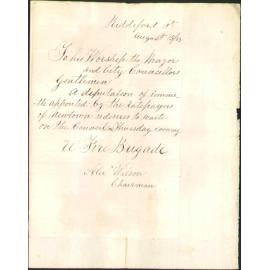 Riddiford St.
August 15/83
To his Worship the Mayor
and City Councillors
Gentlemen
A deputation of
appointed by the Ratepayers
of Newtown desires to waite
on the Council Thursday evening
Fire Brigade
Alex Wilson
Chairman